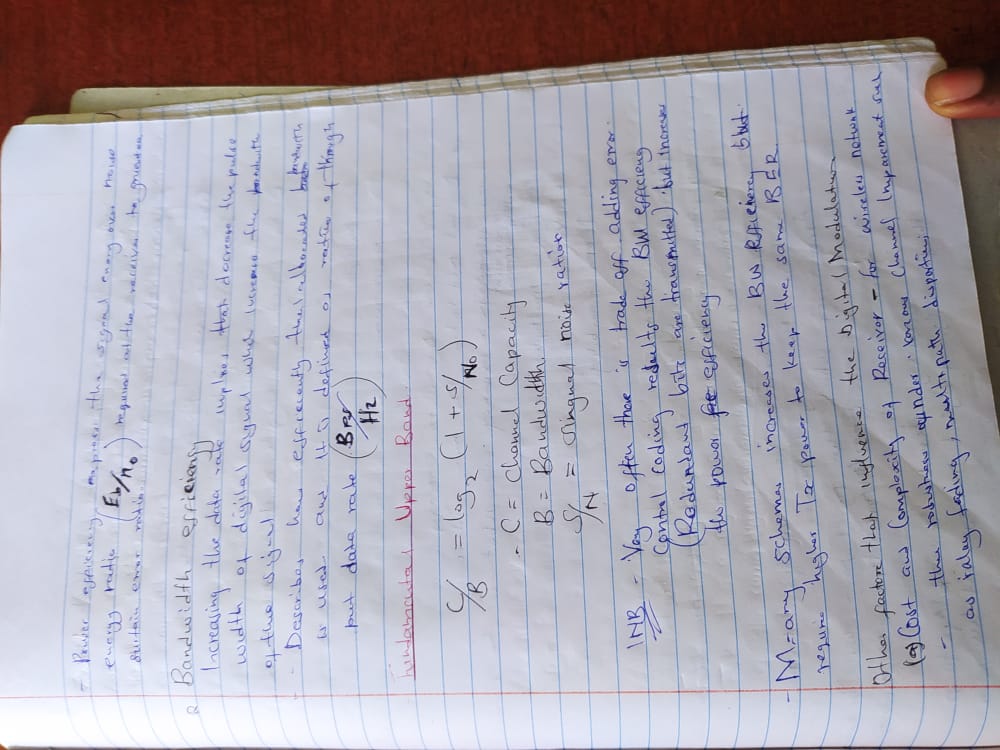 - Power efficiency express the signal energy over noise
energy ratio (Eb/N0) required at the receiver to guarantee
certain error ratio.
2 Bandwidth efficiency
Increasing the data rate implies that decrease the pulse
width of digital signal which increase the bandwidth
of the signal
- Describes how efficiently the allocated bandwidth
is used and it is defined as ratio of through
put data rate (Bps/Hz)
Fundamental Upper Bound
C/B = log2 (1 + S/N0)
- C = Channel Capacity
B = Bandwidth
S/N = Singnal noise ratior
1NB - Very often there is trade off adding error
Control Coding results the BW efficiency
(Redundant bits are transmitted) but increase
the power efficiency
- M=any Schemes increases the BW Efficiency but
require higher Tx power to keep the same BER
Other factors that influence the Digital Modulation
(a) Cost and Complexity of Receivor - for wireless network
- the robustness under various Channel Impairement such
as raley fading, multipath disportion,